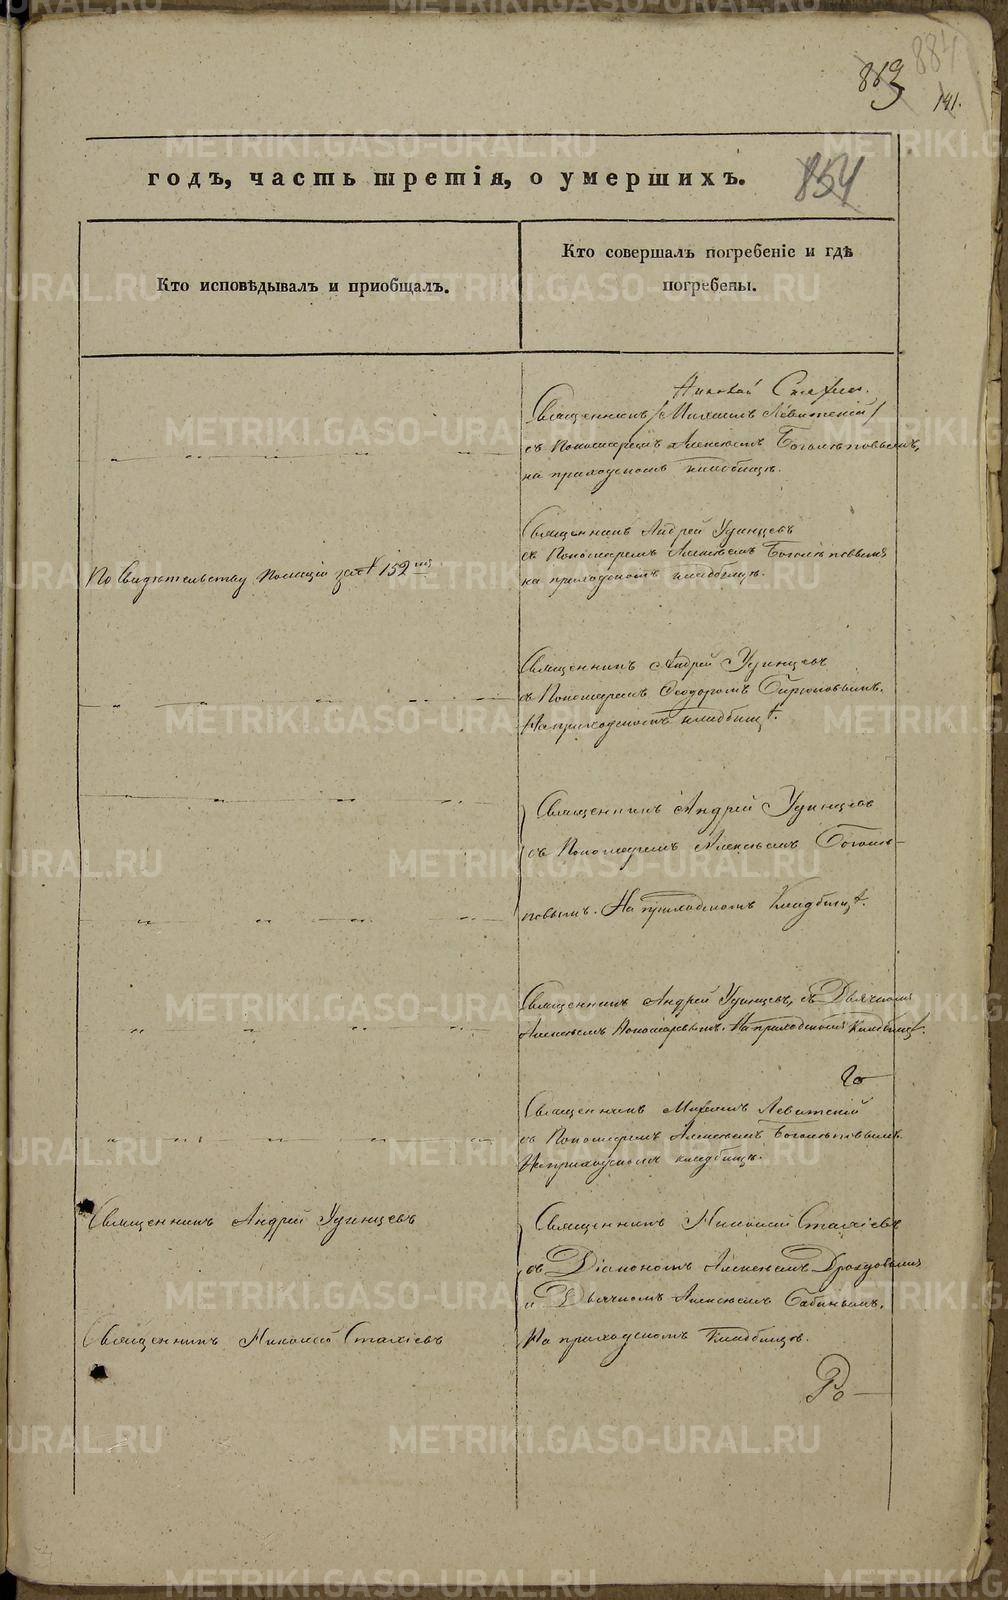 884
863
141.
годъ, часть третія, о умершихъ.
854
Кто исповѣдывалъ и пріобщалъ.
Кто совершалъ погребеніе и гдѣ
погребены.
Николай Стахіев.
Священникъ /Михаилъ Левитскій/
съ Пономаремъ Алексѣемъ Боголѣповымъ,
на приходскомъ кладбищѣ.
Священникъ Андрей Удинцевъ
съ Пономаремъ Алексѣемъ Боголѣповымъ
на приходскомъ кладбищѣ.
По Свидѣтельству Полиціи за № 152
Священникъ Андрей Удинцевъ
съ Пономаремъ Ѳеодоромъ
На приходскомъ кладбищѣ.
Священникъ Андрей Удинцевъ
съ Пономаремъ Алексѣемъ Боголѣ-
повымъ. На приходскомъ Кладбищѣ.
Священникъ Андрей Удинцевъ, съ Дьячкомъ
Алексѣемъ Пономаревымъ. На приходскомъ Кладбищѣ.
Священникъ Михаилъ Левитскій
съ Пономаремъ Алексѣемъ Боголѣповымъ.
На приходскомъ кладбищѣ.
Священникъ Андрей Удинцевъ
Священникъ Николай Стахіевъ
съ Діакономъ Алексѣемъ Дроздовымъ
и Дьячкомъ Алексѣемъ Бабинымъ.
Священникъ Николай Стахіевъ
На приходскомъ Кладбищѣ.
METRIKI.GASO-URAL.RU